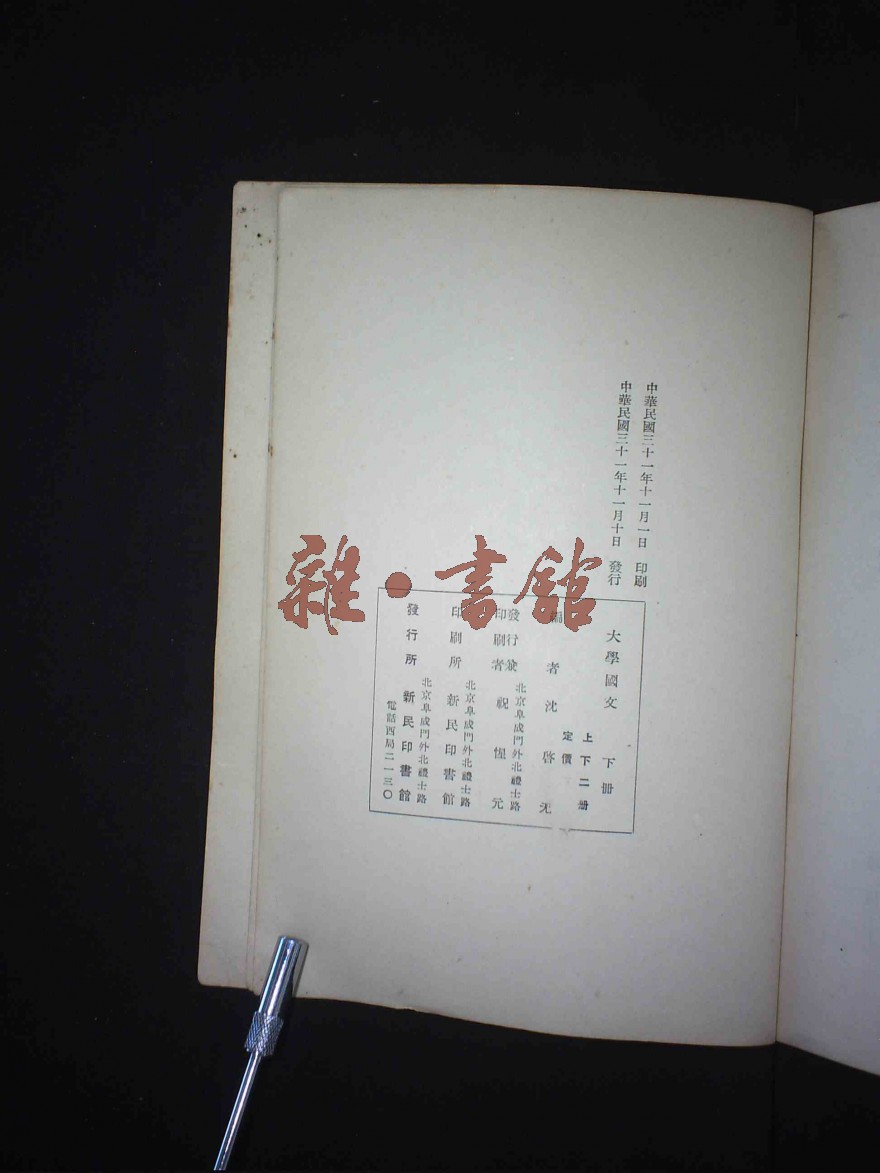 中華民國三十一年十一月一日 印刷
中華民國三十一年十一月十日 發行
大學國文 下冊
上下二册
定價
編者 沈啓无
北京阜成門外北禮士路
發行兼
印刷者 祝惺元
北京阜成門外北禮士路
印刷所 新民印書館
北京阜成門外北禮士路
發行所 新民印書館
電話西局二一三〇
雜·書館